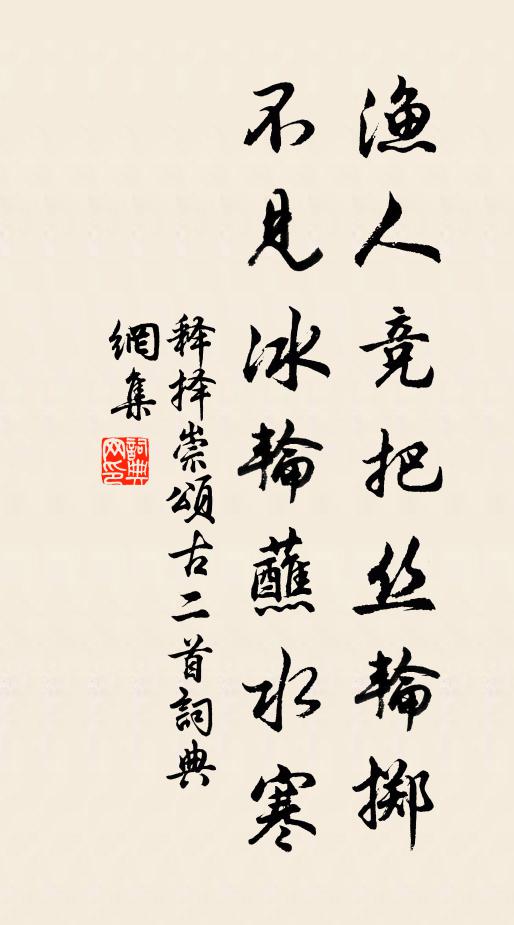 渔人竞把丝轮掷
不见冰轮蘸水寒
释择崇颂古二首詞典
網集
詞典网印